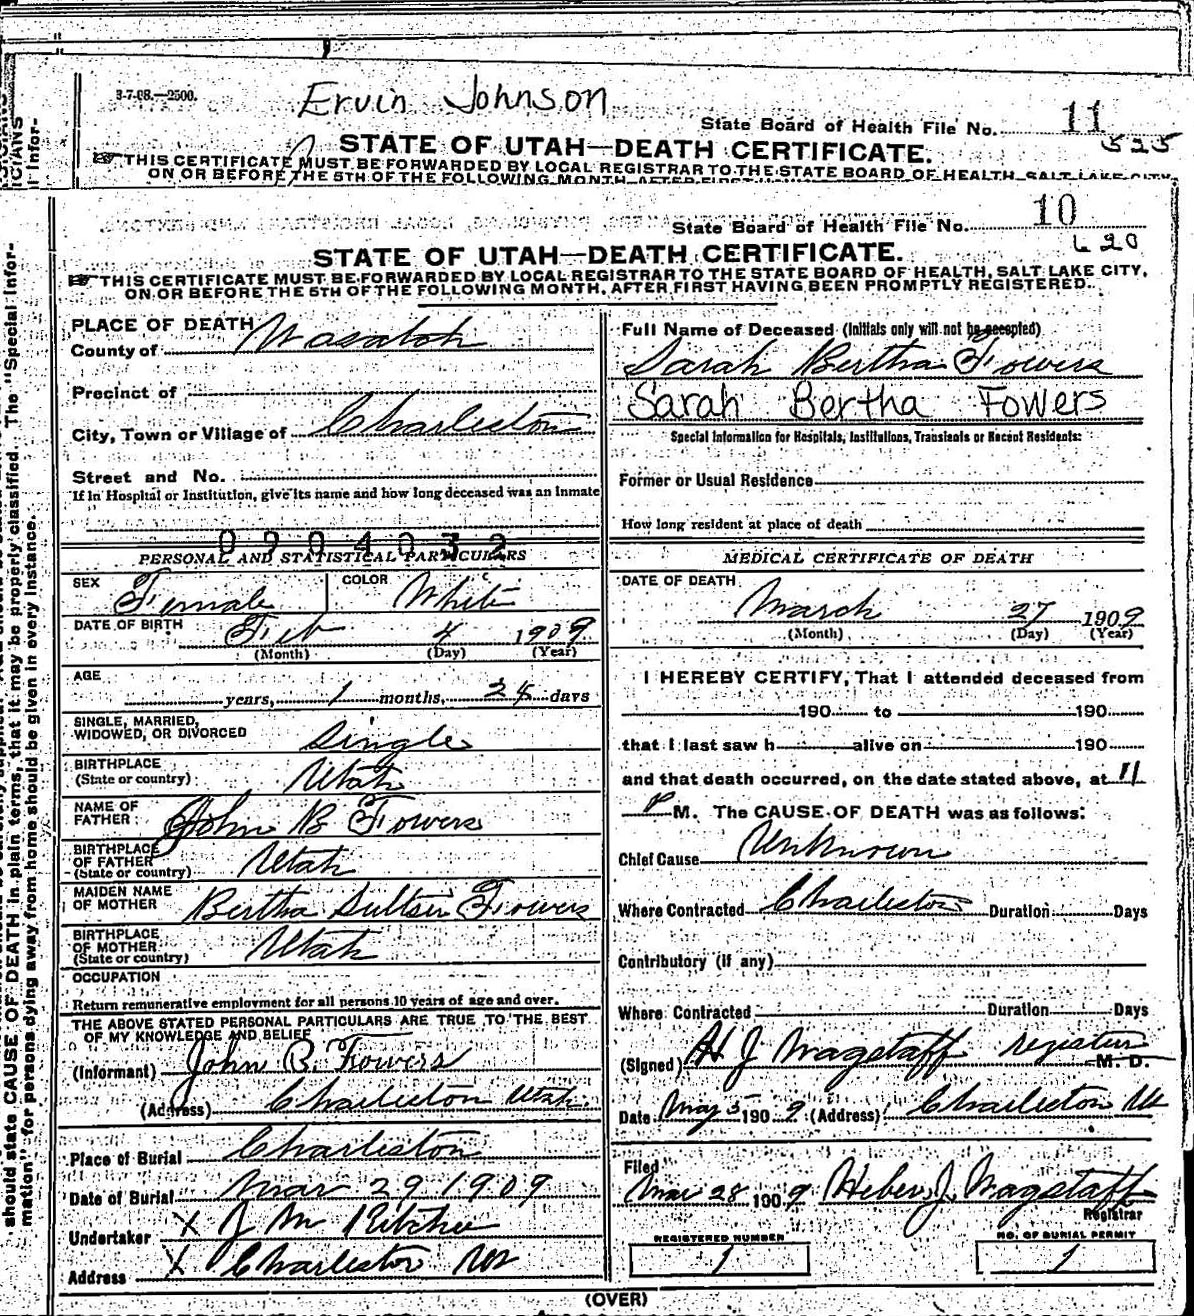 3-7-08.—2500.
Ervin Johnson
State Board of Health File No. 11
525
STATE OF UTAH—DEATH CERTIFICATE.
THIS CERTIFICATE MUST BE FORWARDED BY LOCAL REGISTRAR TO THE STATE BOARD OF HEALTH, SALT LAKE CITY,
ON OR BEFORE THE 5TH OF THE FOLLOWING MONTH, AFTER FIRST
State Board of Health File No. 10
620
STATE OF UTAH—DEATH CERTIFICATE.
THIS CERTIFICATE MUST BE FORWARDED BY LOCAL REGISTRAR TO THE STATE BOARD OF HEALTH, SALT LAKE CITY,
ON OR BEFORE THE 5TH OF THE FOLLOWING MONTH, AFTER FIRST HAVING BEEN PROMPTLY REGISTERED.
PLACE OF DEATH
County of Wasatch
Precinct of
City, Town or Village of Charleston
Street and No.
If in Hospital or Institution, give its name and how long deceased was an inmate
0904032
PERSONAL AND STATISTICAL PARTICULARS
SEX Female COLOR White
DATE OF BIRTH Feb 4 1909
(Month) (Day) (Year)
AGE
years, 1 months, 24 days
SINGLE, MARRIED,
WIDOWED, OR DIVORCED Single
BIRTHPLACE
(State or country) Utah
NAME OF
FATHER John B Fowers
BIRTHPLACE
OF FATHER
(State or country) Utah
MAIDEN NAME
OF MOTHER Bertha Fowers
BIRTHPLACE
OF MOTHER
(State or country) Utah
OCCUPATION
Return remunerative employment for all persons 10 years of age and over.
THE ABOVE STATED PERSONAL PARTICULARS ARE TRUE TO THE BEST
OF MY KNOWLEDGE AND BELIEF
(Informant) John B. Fowers
(Address) Charleston Utah
Place of Burial Charleston
Date of Burial Mar 29 1909
Undertaker X J M Ritchie
Address X Charleston
Full Name of Deceased (Initials only will not be accepted)
Sarah Bertha Fowers
Sarah Bertha Fowers
Special Information for Hospitals, Institutions, Transients or Recent Residents:
Former or Usual Residence
How long resident at place of death
MEDICAL CERTIFICATE OF DEATH
DATE OF DEATH
March 27 1909
(Month) (Day) (Year)
I HEREBY CERTIFY, That I attended deceased from
190 to 190
that I last saw h alive on 190
and that death occurred, on the date stated above, at 11
P M. The CAUSE OF DEATH was as follows:
Chief Cause Unknown
Where Contracted Charleston Duration Days
Contributory (if any)
Where Contracted Duration Days
(Signed) H J Wagstaff Register M. D.
Date May 5 1909 (Address) Charleston
Filed
Mar 28 1909 Heber J. Wagstaff
Registrar
REGISTERED NUMBER
1
NO. OF BURIAL PERMIT
1
(OVER)
should state CAUSE OF DEATH in plain terms, that it may be properly classified. The "Special Infor-
mation" for persons dying away from home should be given in every instance.